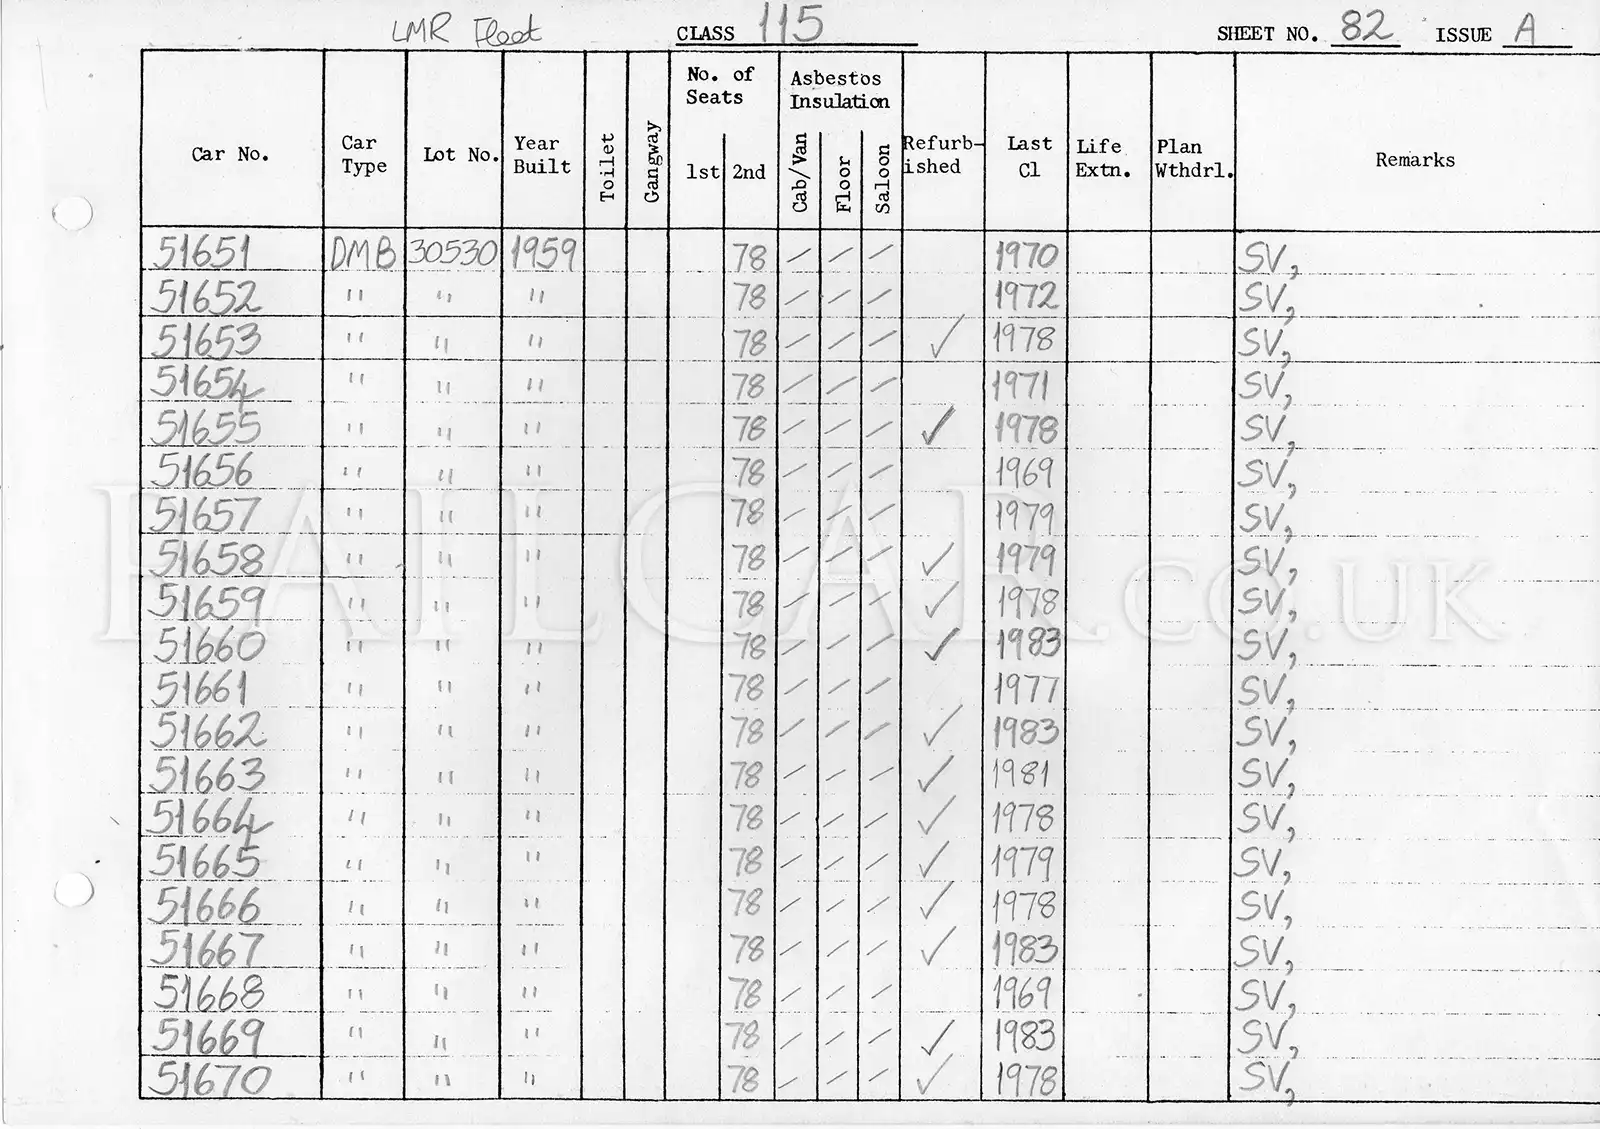 LMR Fleet CLASS 115 SHEET NO. 82 ISSUE A
Car No. Car Type Lot No. Year Built Toilet Gangway No. of Seats 1st 2nd Asbestos Insulation Cab/Van Floor Saloon Refurb-ished Last Cl Life Extn. Plan Wthdrl. Remarks
51651 DMB 30530 1959 78 / / / 1970 SV,
51652 " " " 78 / / / 1972 SV,
51653 " " " 78 / / / ✓ 1978 SV,
51654 " " " 78 / / / 1971 SV,
51655 " " " 78 / / / ✓ 1978 SV,
51656 " " " 78 / / / 1969 SV,
51657 " " " 78 / / / 1979 SV,
51658 " " " 78 / / / ✓ 1979 SV,
51659 " " " 78 / / / ✓ 1978 SV,
51660 " " " 78 / / / ✓ 1983 SV,
51661 " " " 78 / / / 1977 SV,
51662 " " " 78 / / / ✓ 1983 SV,
51663 " " " 78 / / / ✓ 1981 SV,
51664 " " " 78 / / / ✓ 1978 SV,
51665 " " " 78 / / / ✓ 1979 SV,
51666 " " " 78 / / / ✓ 1978 SV,
51667 " " " 78 / / / ✓ 1983 SV,
51668 " " " 78 / / / 1969 SV,
51669 " " " 78 / / / ✓ 1983 SV,
51670 " " " 78 / / / ✓ 1978 SV,
RAILCAR.CO.UK